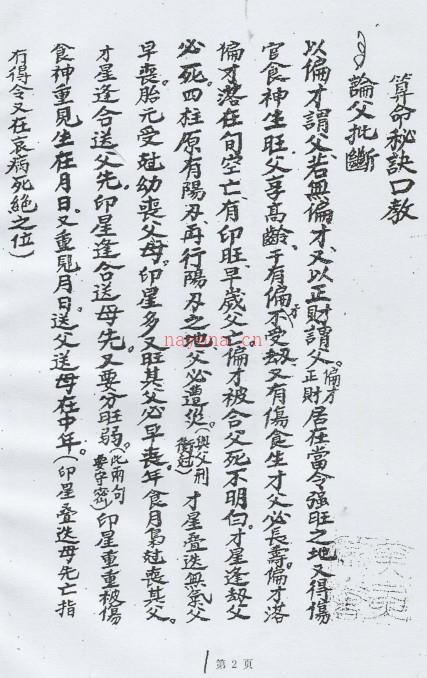 算命秘訣口教
論父批斷
以偏才謂父若無偏才又以正財謂父。偏才正財居在當令強旺之地又得傷
官食神生旺父享高齡于有偏才不受刼又有傷食生才父必長壽。偏才落
偏才落在旬空亡有印旺早歲父亡偏才被合父死不明白。才星逢刼父
必死四柱原有陽刃再行陽刃之地父必遭災(與父刑衝尅)才星叠迭無氣父
早喪。胎元受尅幼喪父母。印星多又旺其父必早喪年食月梟尅喪其父。
才星逢合送父先。印星逢合送母先。又要分旺弱。(此兩句要守密)印星重重被傷
食神重見生在月日又重見月日。送父送母在中年。(印星叠迭母先亡指
有得令又在衰病死絕之位)
nayona.cn
第 2 頁